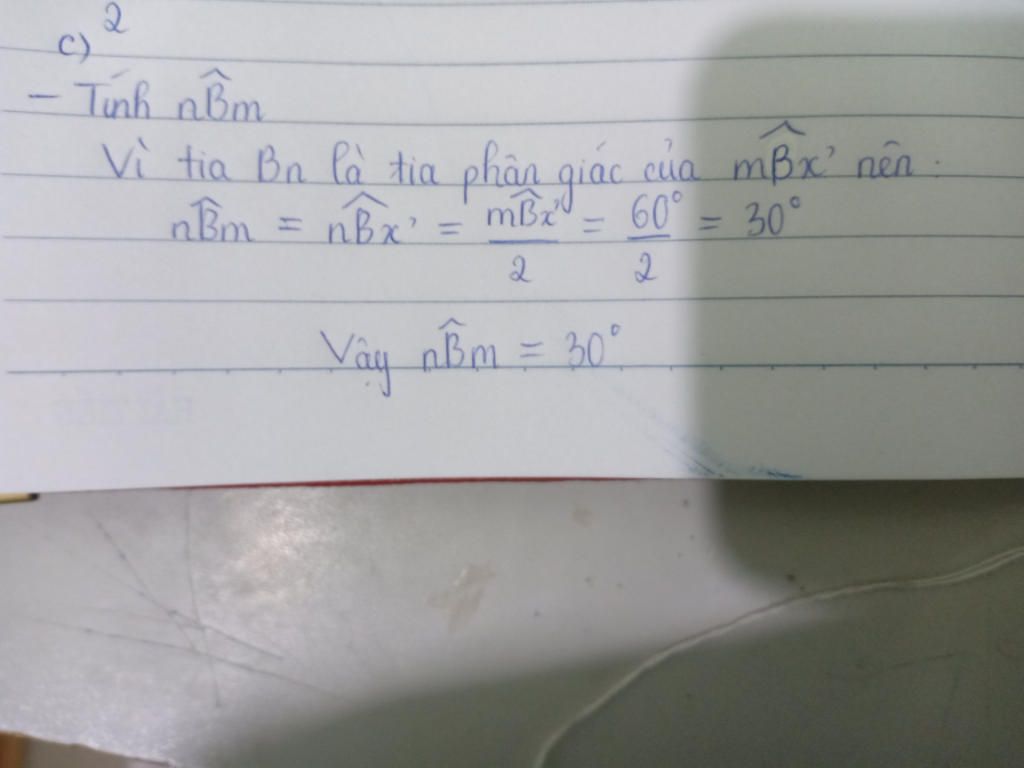 2
c)
- Tính nB̂m
Vì tia Bn là tia phân giác của mB̂x' nên:
nB̂m = nB̂x' = mB̂x'/2 = 60°/2 = 30°
Vậy nB̂m = 30°